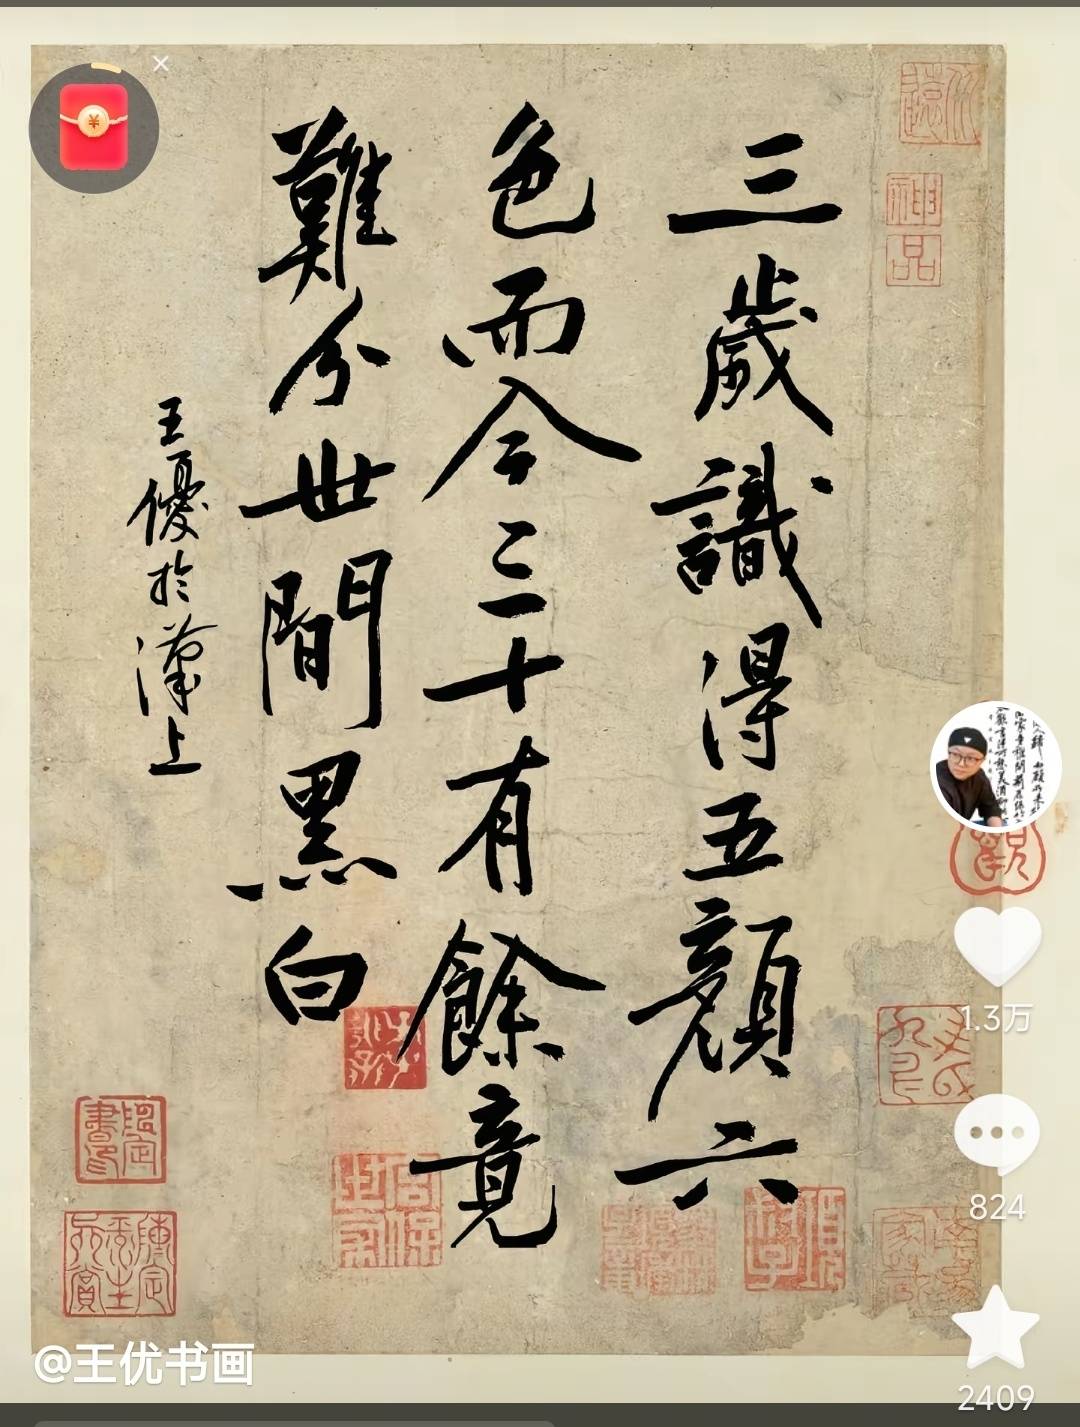 三歲識得五顏六
色而今二十有餘竟
難分世間黑白
王優於漢上
神品
1.3万
824
2409
@王优书画